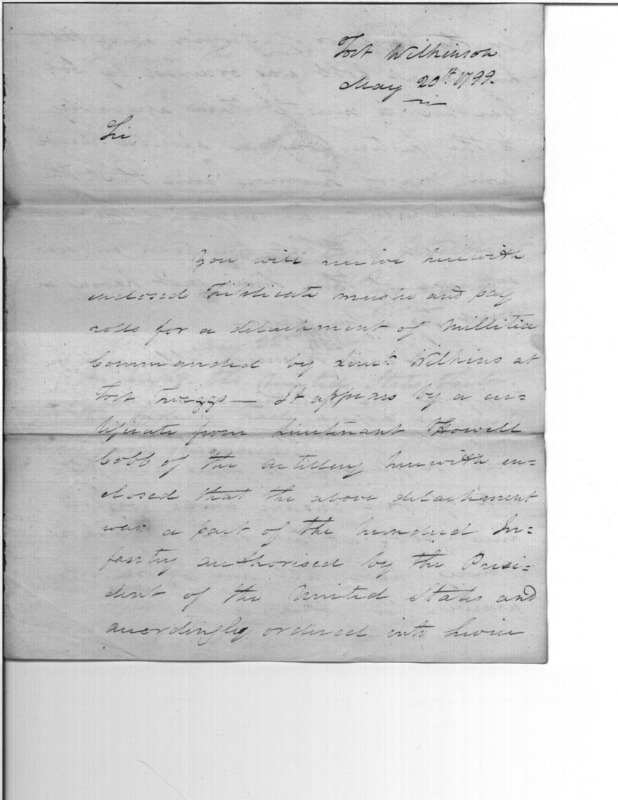 Fort Wilkinson
May 20th 1799.
Sir,
You will receive herewith
enclosed Triplicate muster and pay
rolls for a detachment of Millitia
Commanded by Lieut. Wilkins at
Fort Twiggs — It appears by a cer=
tificate from Lieutenant Howell
Cobb of the Artillery herewith en=
closed that the above detachment
was a part of the hundred In=
fantry authorised by the Presi=
dent of the United States and
accordingly ordered into Service